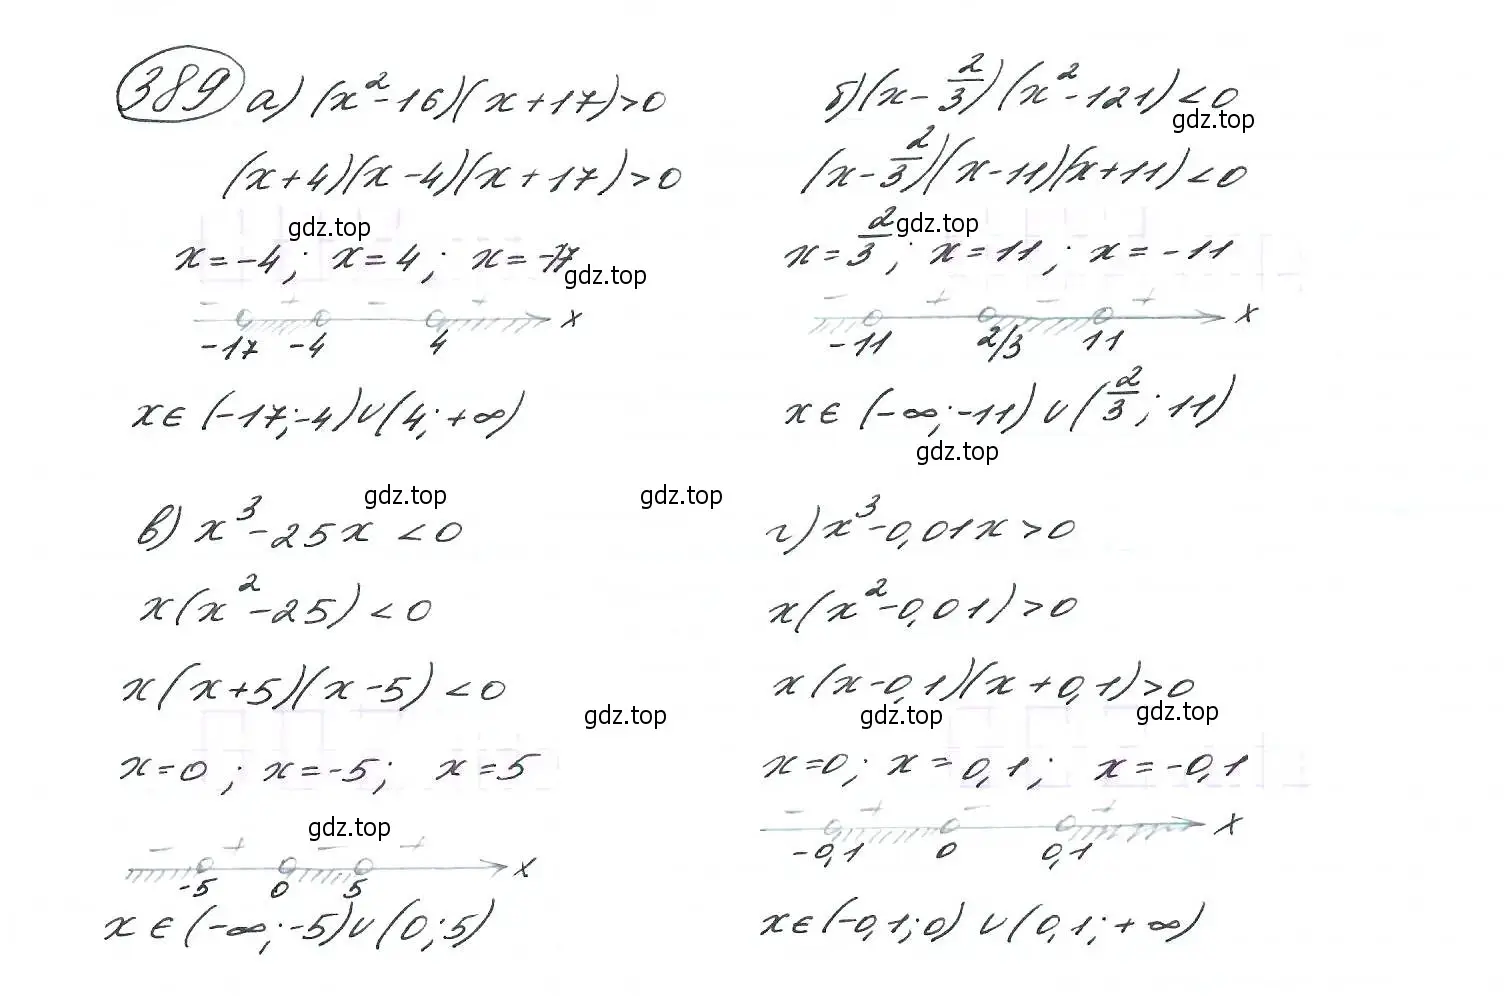 389 а) (x²-16)(x+17)>0
(x+4)(x-4)(x+17)>0
gdz.top
x=-4; x=4; x=-17
gdz.top
- + - +
-17 -4 4 x
x∈(-17;-4)∪(4;+∞)
б) (x-2/3)(x²-121)<0
gdz.top
(x-2/3)(x-11)(x+11)<0
gdz.top
x=2/3; x=11; x=-11
- + - +
-11 2/3 11 x
x∈(-∞;-11)∪(2/3;11)
gdz.top
gdz.top
в) x³-25x<0
x(x²-25)<0
x(x+5)(x-5)<0
gdz.top
x=0; x=-5; x=5
gdz.top
- + - +
-5 0 5 x
x∈(-∞;-5)∪(0;5)
gdz.top
г) x³-0,01x>0
x(x²-0,01)>0
x(x-0,1)(x+0,1)>0
gdz.top
gdz.top
x=0; x=0,1; x=-0,1
- + - +
-0,1 0 0,1 x
x∈(-0,1;0)∪(0,1;+∞)